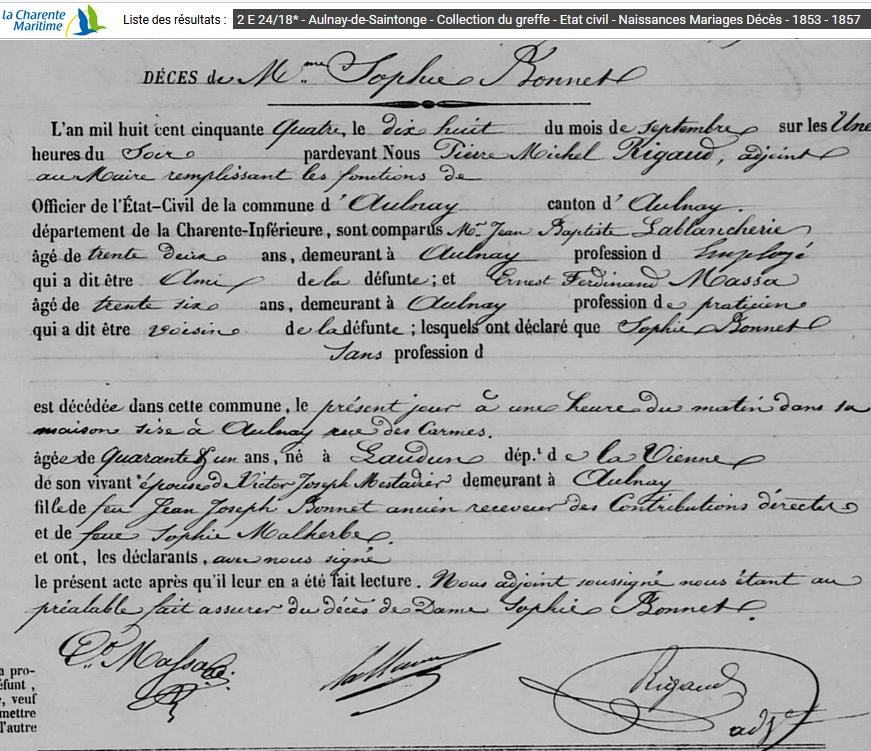 la Charente
Maritime
Liste des résultats :
2 E 24/18* - Aulnay-de-Saintonge - Collection du greffe - Etat civil - Naissances Mariages Décès - 1853 - 1857
DÉCES de Mme Sophie Bonnet
L'an mil huit cent cinquante Quatre, le dix huit du mois de septembre sur les Une
heures du Soir pardevant Nous Pierre Michel Rigaud, adjoint
au Maire remplissant les fonctions de
Officier de l'État-Civil de la commune d'Aulnay canton d'Aulnay.
département de la Charente-Inférieure, sont comparus Mr. Jean Baptiste Lablancherie
âgé de trente deux ans, demeurant à Aulnay profession d Employé
qui a dit être Ami de la défunte ; et Ernest Ferdinand Massa
âgé de trente six ans, demeurant à Aulnay profession de praticien
qui a dit être voisin de la défunte ; lesquels ont déclaré que Sophie Bonnet
Sans profession d
est décédée dans cette commune, le présent jour à une heure du matin dans sa
maison sise à Aulnay rue des Carmes.
âgée de Quarante & un ans, né à Laudun dép.t d e la Vienne
de son vivant épouse de Victor Joseph Mestadier demeurant à Aulnay
fille de feu Jean Joseph Bonnet ancien receveur des Contributions directes
et de feue Sophie Malherbe.
et ont, les déclarants, avec nous signé
le présent acte après qu'il leur en a été fait lecture. Nous adjoint soussigné nous étant au
préalable fait assurer du décès de Dame Sophie Bonnet.
Massa
Rigaud
adjt
a pro-
éfunt,
e, veuf
mettre
l'autre